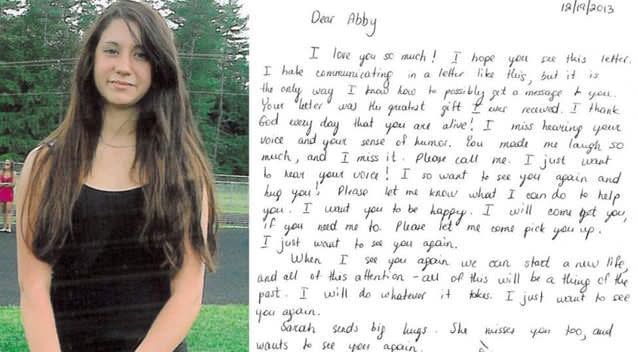 12/19/2013
Dear Abby
I love you so much! I hope you see this letter.
I hate communicating in a letter like this, but it is
the only way I know how to possibly get a message to you.
Your letter was the greatest gift I ever received. I thank
God every day that you are alive! I miss hearing your
voice and your sense of humor. You made me laugh so
much, and I miss it. Please call me. I just want
to hear your voice! I so want to see you again and
hug you! Please let me know what I can do to help
you. I want you to be happy. I will come get you,
if you need me to. Please let me come pick you up.
I just want to see you again.
When I see you again we can start a new life,
and all of this attention - all of this will be a thing of the
past. I will do whatever it takes. I just want to see
you again.
Sarah sends big hugs. She misses you too, and
wants to see you again.